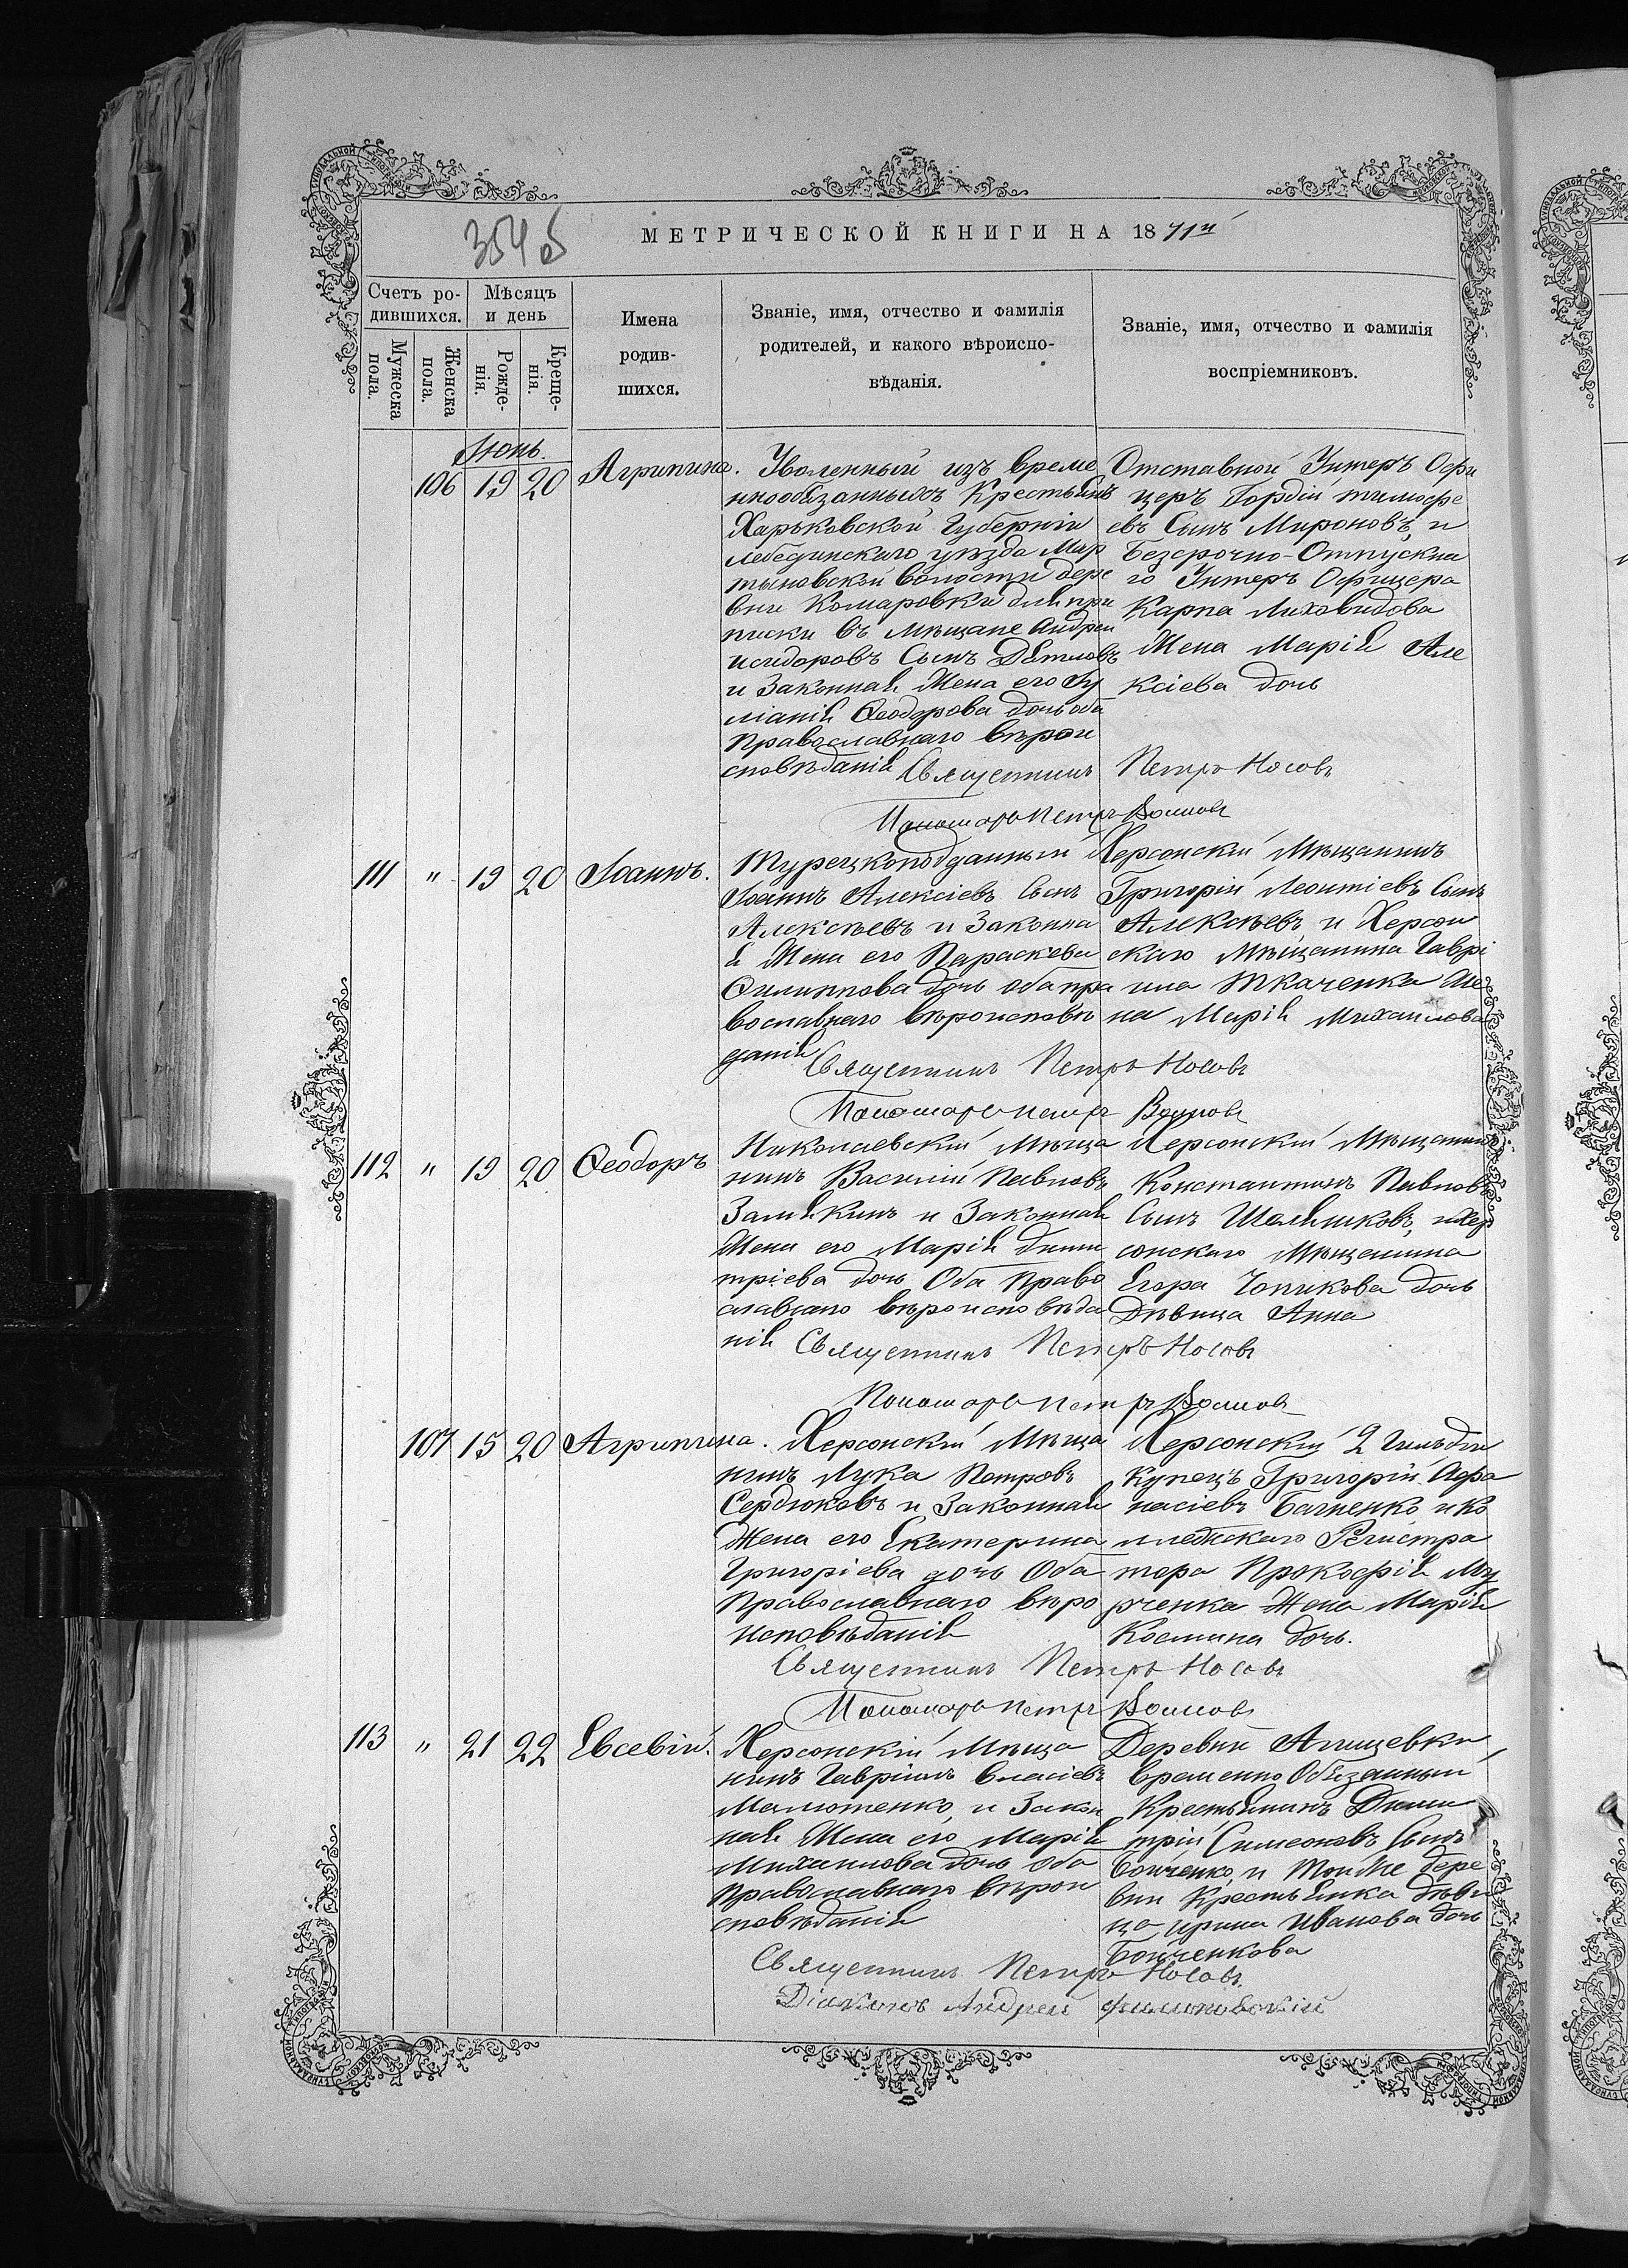 354 об
МЕТРИЧЕСКОЙ КНИГИ НА 1871й
Счетъ ро-
дившихся.
Мѣсяцъ
и день
Имена
родив-
шихся.
Званіе, имя, отчество и фамилія
родителей, и какого вѣроиспо-
вѣданія.
Званіе, имя, отчество и фамилія
воспріемниковъ.
Мужеска
пола.
Женска
пола.
Рожде-
нія.
Креще-
нія.
Іюнь.
106 19 20 Агрипина.
Уволенный изъ време
ннообязанныхъ Крестьянъ
Харьковской Губерніи
Лебединскаго уѣзда Мар
тыновской волости дере
вни Комаровки для при
писки въ мѣщане Андрей
Исидоровъ Сынъ Дятловъ
и Законная Жена его Іу
ліанія Ѳеодорова дочь оба
Православнаго вѣрои
сповѣданія
Отставной Унтеръ Офи
церъ Гордій тимофе
евъ Сынъ Мироновъ, и
Безсрочно-Отпускна
го Унтеръ Офицера
Карпа Лиховидова
Жена Марія Але
ксіева дочь
Священникъ Петръ Носовъ
Пономарь Петръ Воиновъ
111 " 19 20 Іоаннъ.
Турецкоподданный
Іоаннъ Алексіевъ Сынъ
Алексѣевъ и Законна
я Жена его Параскева
Филиппова дочь оба пра
вославнаго вѣроисповѣ
данія
Херсонскій Мѣщанинъ
Григорій Леонтіевъ Сынъ
Алексѣевъ, и Херсон
скаго Мѣщанина Гаврі
ила Ткаченка Же
на Марія Михаилова
Священникъ Петръ Носовъ
Пономарь Петръ Воиновъ
112 " 19 20 Ѳеодоръ
Николаевскій Мѣща
нинъ Василій Павловъ
Замякинъ и Законная
Жена его Марія Дими
тріева дочь Оба Право
славнаго вѣроисповѣда
нія
Херсонскій Мѣщанинъ
Константинъ Павловъ
Сынъ и Хер
сонскаго Мѣщанина
Егора Чопикова дочь
Дѣвица Анна
Священникъ Петръ Носовъ
Пономарь Петръ Воиновъ
107 15 20 Агрипина.
Херсонскій Мѣща
нинъ Лука Петровъ
Сердюковъ и Законная
Жена его Екатерина
Григоріева дочь Оба
Православнаго вѣро
исповѣданія
Херсонскій 2 Гильдіи
Купецъ Григорій Афа
насіевъ и Ко
ллежскаго Регистра
тора Прокофія Му
рченка Жена Марія
Косьмина дочь.
Священникъ Петръ Носовъ
Пономарь Петръ Воиновъ
113 " 21 22 Евсевій.
Херсонскій Мѣща
нинъ Гавріилъ Власіевъ
Малютенко, и Закон
ная Жена его Марія
Михаилова дочь оба
Православнаго вѣрои
сповѣданія
Деревни
временно Обязанный
Крестьянинъ Дими
трій Симеоновъ Сынъ
Бойченко, и Той же дере
вни Крестьянка дѣви
ца Ирина Иванова дочь
Бойченкова
Священникъ Петръ Носовъ.
Діаконъ Андрей Филиповскій